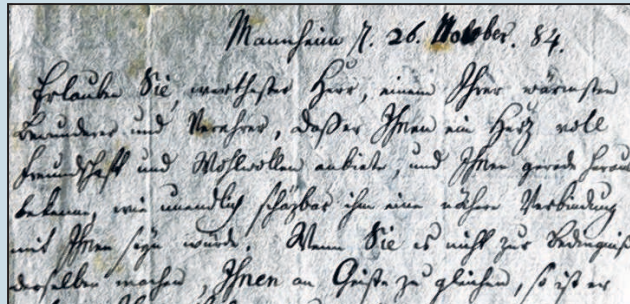 Mannheim d. 26. October. 84.
Erlauben Sie, werthester Herr, einem Ihrer wärmsten
Bewunderer und Verehrer, daß er Ihnen ein Herz voll
Freundschaft und Wohlwollen anbiete, und Ihnen gerade heraus
bekenne, wie unendlich schäzbar ihm eine nähere Verbindung
mit Ihnen seyn würde. Wenn Sie es nicht zur Bedingniß
derselben machen, Ihnen an Geiste zu gleichen, so ist er